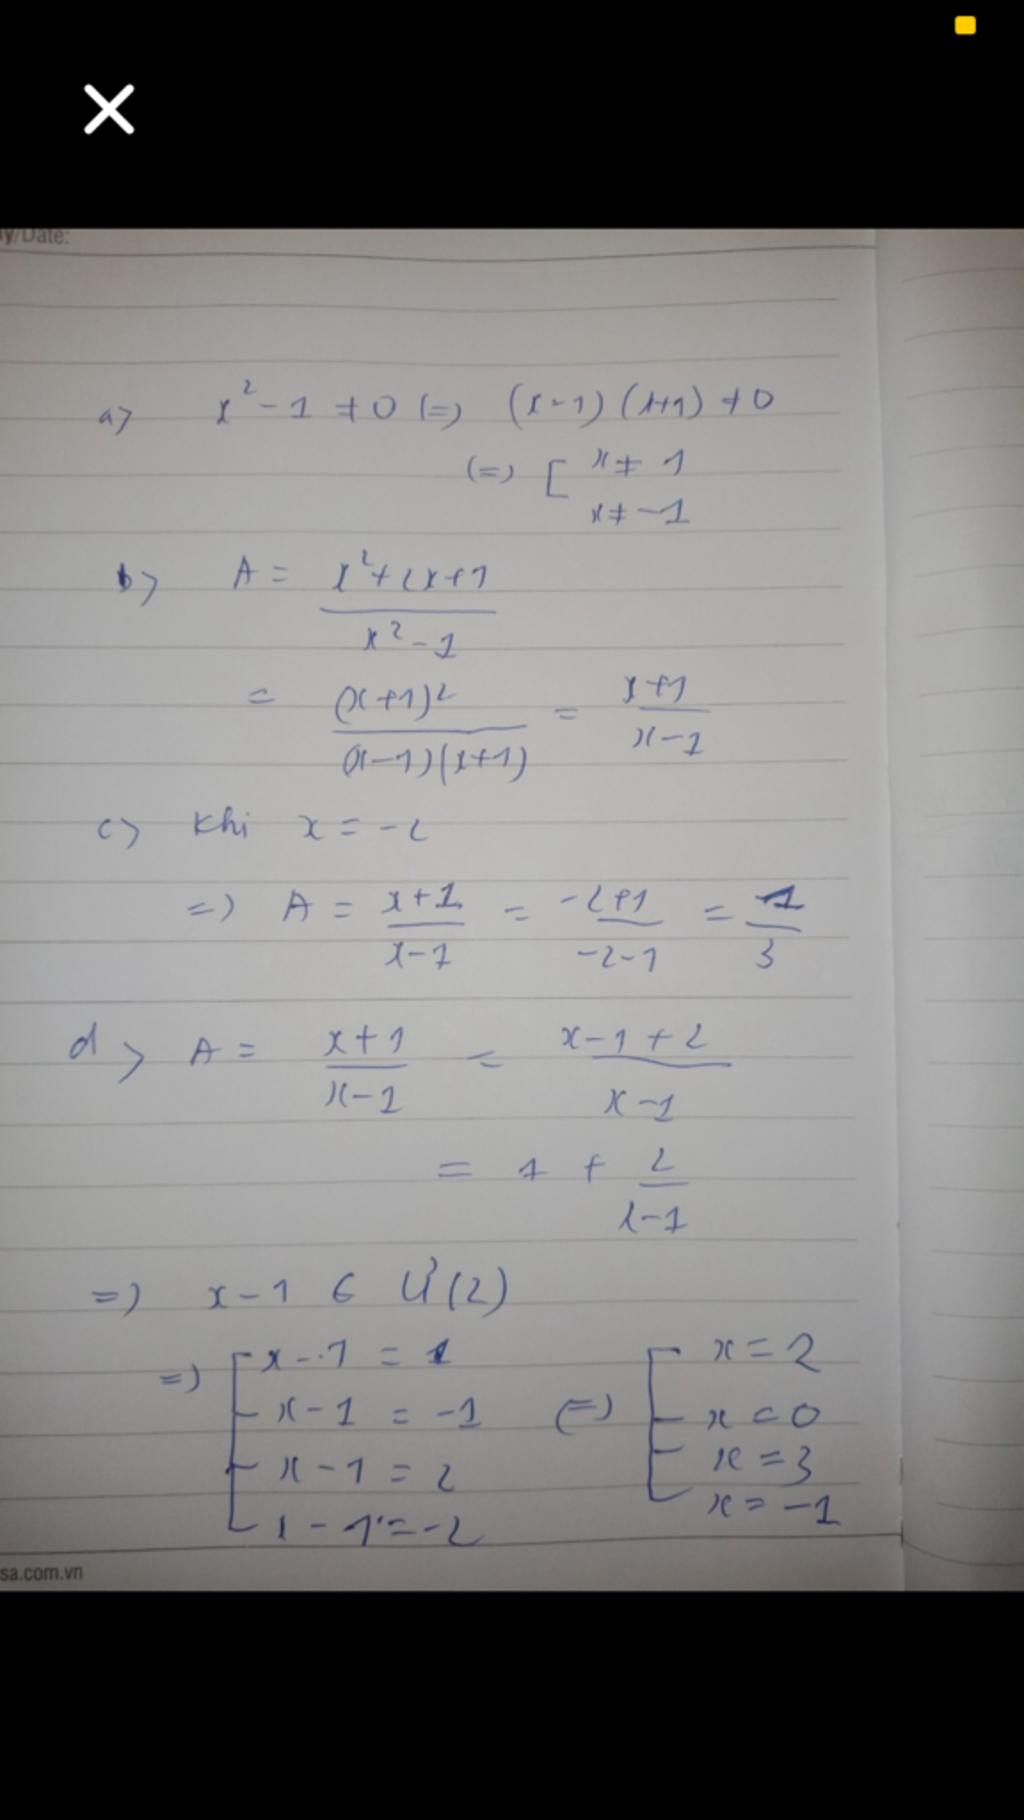 y/Date:
a> x² - 1 ≠ 0 (=) (x-1) (x+1) ≠ 0
(=) [ x ≠ 1
x ≠ -1
b> A = x² + 2x + 1
x² - 1
= (x+1)² = x+1
(x-1)(x+1) x-1
c> Khi x = -2
=) A = x+1 = -2+1 = 1
x-1 -2-1 3
d> A = x+1 = x-1+2
x-1 x-1
= 1 + 2
x-1
=) x-1 ∈ Ư(2)
=) [ x-1 = 1 (=) [ x = 2
x-1 = -1 x = 0
x-1 = 2 x = 3
x-1 = -2 x = -1
sa.com.vn